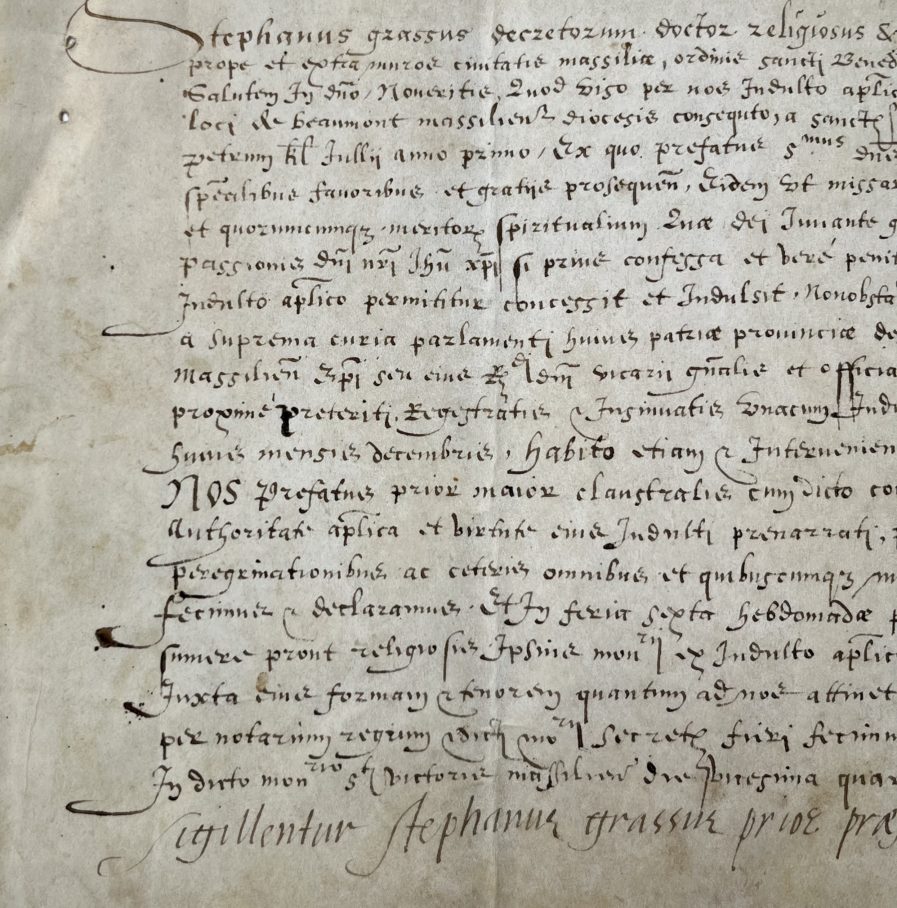 Stephanus grassus decretorum doctor religiosus &
prope et extra muros civitatis massiliæ, ordinis sancti Bened
Salutem In dño, Noveritis, Quod viso per nos Indulto aplic
loci de beaumont massilien diocesis consequto, a sanct
petrum kl Jullii anno primo, Ex quo prefatus smus dns
spẽalibus favoribus et gratiis prosequeñ, Eidem vt missar
et quorumcumqz meritorz spiritualium Quæ dei Iuuante g
passionis dñi nri Jhũ xpi si prius confessa et veré penit
Indulto aplico permititur concessit et Indulsit, Nonobsta
a suprema curia parlamenti huius patriæ provinciæ de
Massilieñ Epi seu eius Rdi dñi vicarii gñalis et officia
proximé preteriti, Registratis & Insinuatis Vnacum Indu
huius mensis decembris, habito etiam & Intervenien
NOS prefatus prior maior claustralis cum dicto co
Authoritate aplica et virtute eius Indulti prenarrati,
peregrinationibus ac ceteris omnibus et quibuscumqz
fecimus & declaramus. Et In feria sexta hebdomadæ p
sumere prout religiosis Ipsius monrii ex Indulto aplic
Iuxta eius formam & tenorem quantum ad nos attinet
per notarium regium dicti morii Secret fieri fecim
In dicto monrio sti victoris massilieñ die vicesima quar
sigillentur Stephanus grassus prior præ